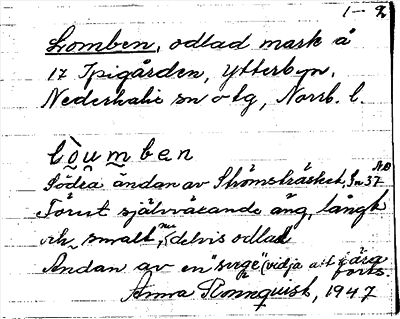 1 - 2
Lomben, odlad mark å
17 Spigården, Ytterbyn,
Nederkalix sn o tg, Norrb. l.
lòumben
Södra ändan av Strömträsket,
Förut självväxande äng, långt
och smalt, nu delvis odlad
Ändan av en "svege" (vidja att
forts.
Anna Rönnquist, 1947